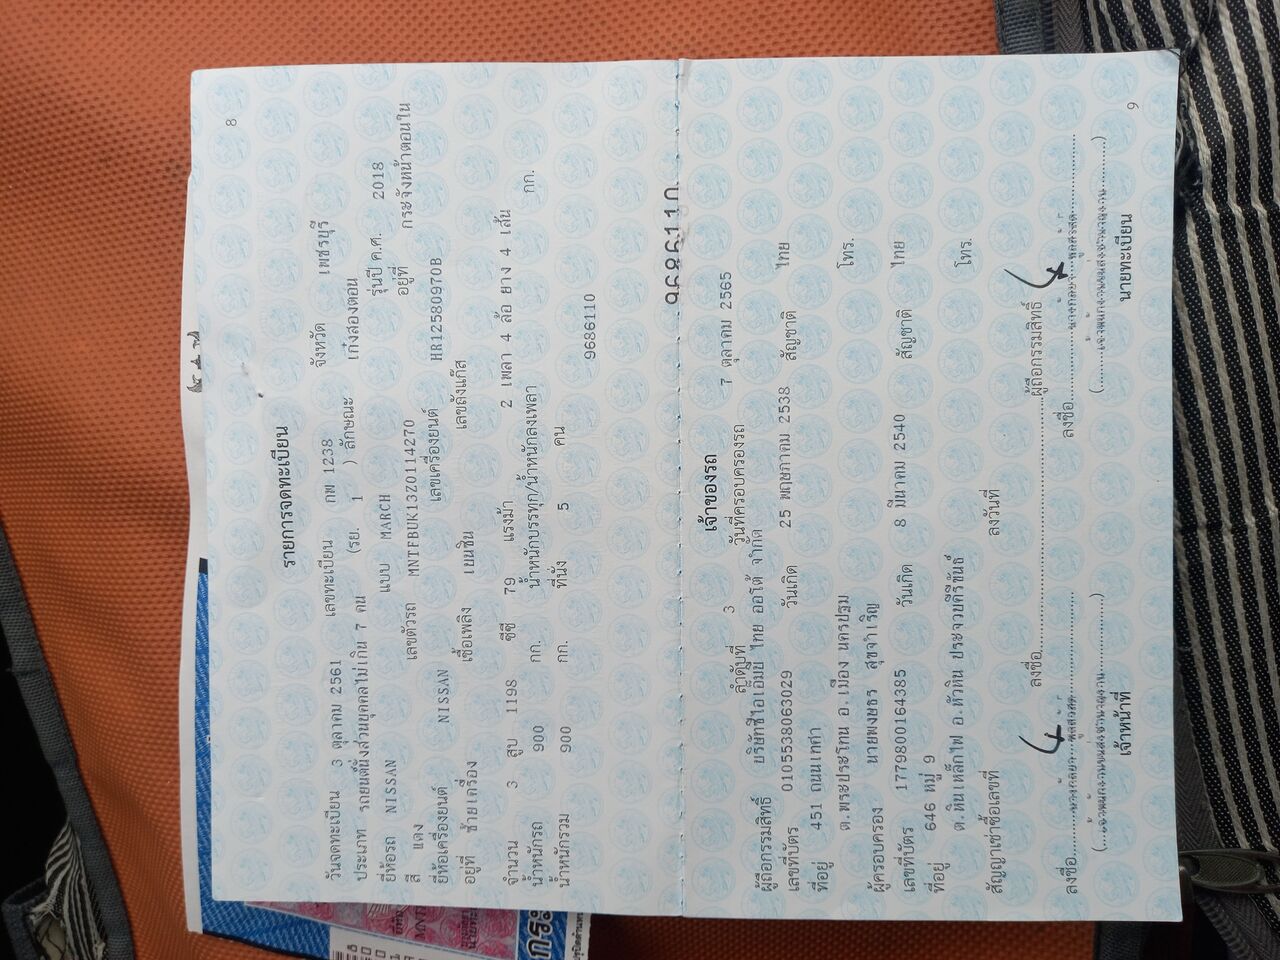 8
รายการจดทะเบียน
วันจดทะเบียน 3 ตุลาคม 2561 เลขทะเบียน กพ 1238 จังหวัด เพชรบุรี
ประเภท รถยนต์นั่งส่วนบุคคลไม่เกิน 7 คน (รย. 1 ) ลักษณะ เก๋งสองตอน
ยี่ห้อรถ NISSAN แบบ MARCH รุ่นปี ค.ศ. 2018
สี แดง เลขตัวรถ MNTFBUK13Z0114270 อยู่ที่ กระจังหน้าตอนใน
ยี่ห้อเครื่องยนต์ NISSAN เลขเครื่องยนต์ HR12580970B
อยู่ที่ ซ้ายเครื่อง เชื้อเพลิง เบนซิน เลขถังแก๊ส
จำนวน 3 สูบ 1198 ซีซี 79 แรงม้า 2 เพลา 4 ล้อ ยาง 4 เส้น
น้ำหนักรถ 900 กก. น้ำหนักบรรทุก/น้ำหนักลงเพลา กก.
น้ำหนักรวม 900 กก. ที่นั่ง 5 คน
9686110
9686110
เจ้าของรถ
ลำดับที่ 3 วันที่ครอบครองรถ 7 ตุลาคม 2565
ผู้ถือกรรมสิทธิ์ บริษัทซีไอเอ็มบี ไทย ออโต้ จำกัด
เลขที่บัตร 0105538063029 วันเกิด 25 พฤษภาคม 2538 สัญชาติ ไทย
ที่อยู่ 451 ถนนเทศา
ต.พระประโทน อ.เมือง นครปฐม โทร.
ผู้ครอบครอง นายพงษธร สุขจำเริญ
เลขที่บัตร 1779800164385 วันเกิด 8 มีนาคม 2540 สัญชาติ ไทย
ที่อยู่ 646 หมู่ 9
ต.หินเหล็กไฟ อ.หัวหิน ประจวบคีรีขันธ์ โทร.
สัญญาเช่าซื้อเลขที่ ลงวันที่
ลงชื่อ ผู้ถือกรรมสิทธิ์
ลงชื่อ ลงชื่อ
เจ้าหน้าที่ นายทะเบียน
9